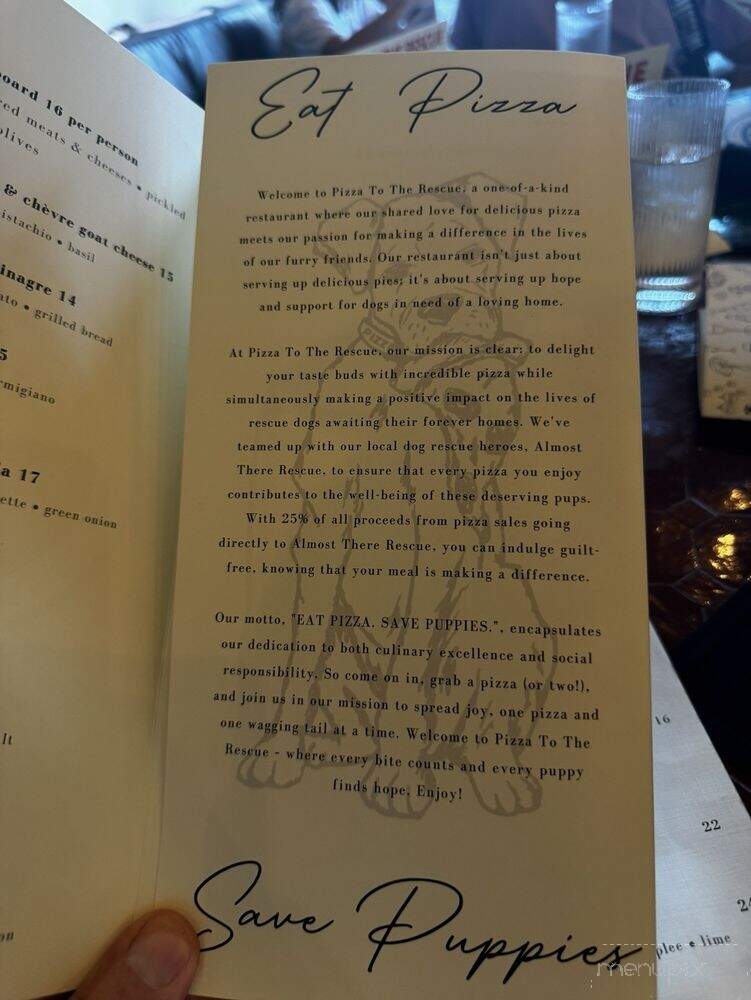 oard 16 per person
red meats & cheeses • pickled
olives
& chèvre goat cheese 15
istachio • basil
inagre 14
ato • grilled bread
5
rmigiano
a 17
ette • green onion
lt
on
Eat Pizza
Welcome to Pizza To The Rescue, a one-of-a-kind
restaurant where our shared love for delicious pizza
meets our passion for making a difference in the lives
of our furry friends. Our restaurant isn't just about
serving up delicious pies; it's about serving up hope
and support for dogs in need of a loving home.
At Pizza To The Rescue, our mission is clear: to delight
your taste buds with incredible pizza while
simultaneously making a positive impact on the lives of
rescue dogs awaiting their forever homes. We've
teamed up with our local dog rescue heroes, Almost
There Rescue, to ensure that every pizza you enjoy
contributes to the well-being of these deserving pups.
With 25% of all proceeds from pizza sales going
directly to Almost There Rescue, you can indulge guilt-
free, knowing that your meal is making a difference.
Our motto, "EAT PIZZA. SAVE PUPPIES.", encapsulates
our dedication to both culinary excellence and social
responsibility. So come on in, grab a pizza (or two!),
and join us in our mission to spread joy, one pizza and
one wagging tail at a time. Welcome to Pizza To The
Rescue - where every bite counts and every puppy
finds hope. Enjoy!
Save Puppies
16
22
plee • lime
menupix